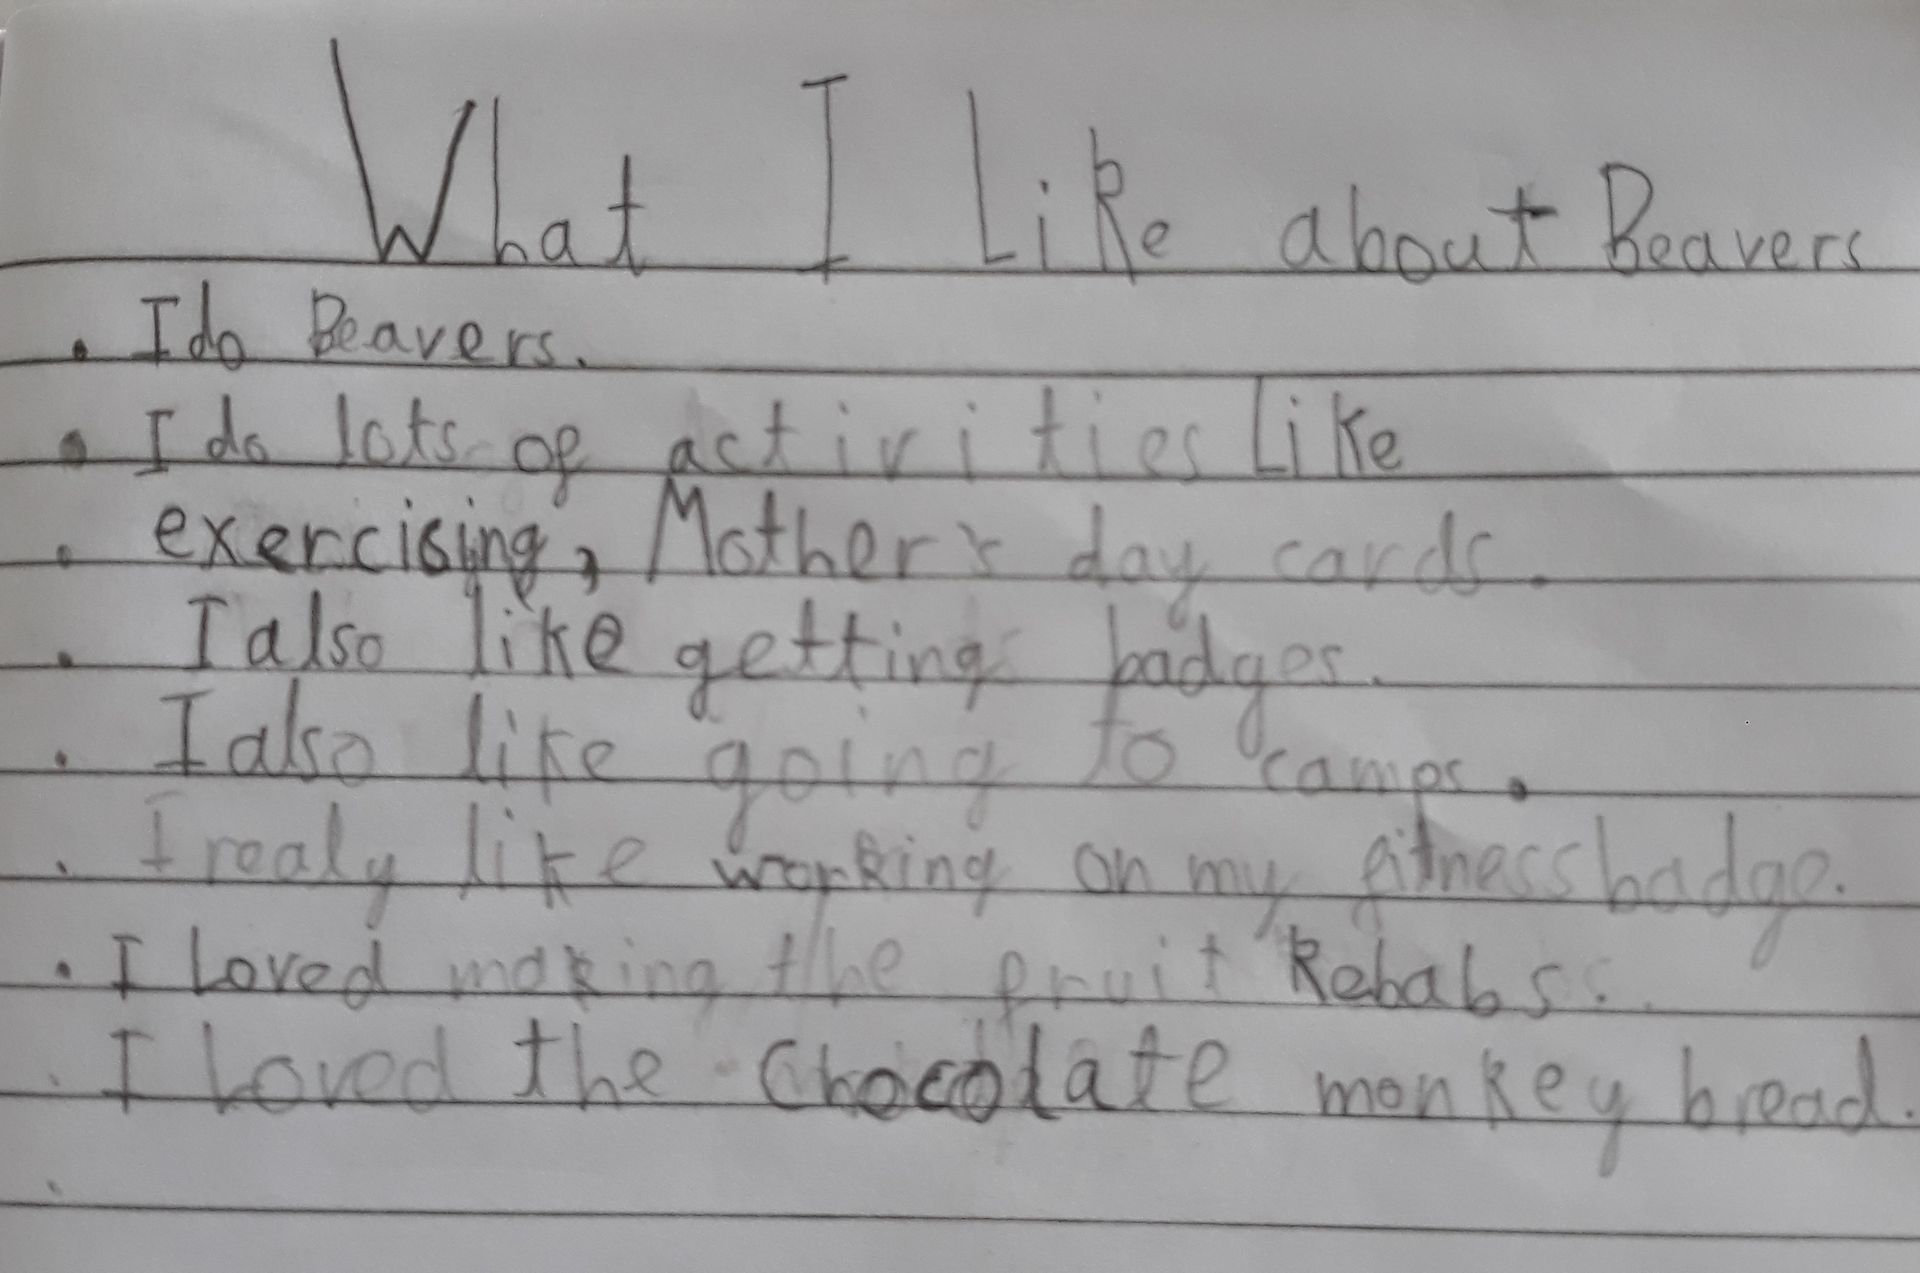 What I Like about Beavers
. I do Beavers.
. I do lots of activities Like
. exercising, Mother's day cards.
. I also like getting badges.
. I also like going to camps.
. I realy like working on my fitness badge.
. I Loved making the fruit Kebabs.
. I Loved the Chocolate monkey bread.
.